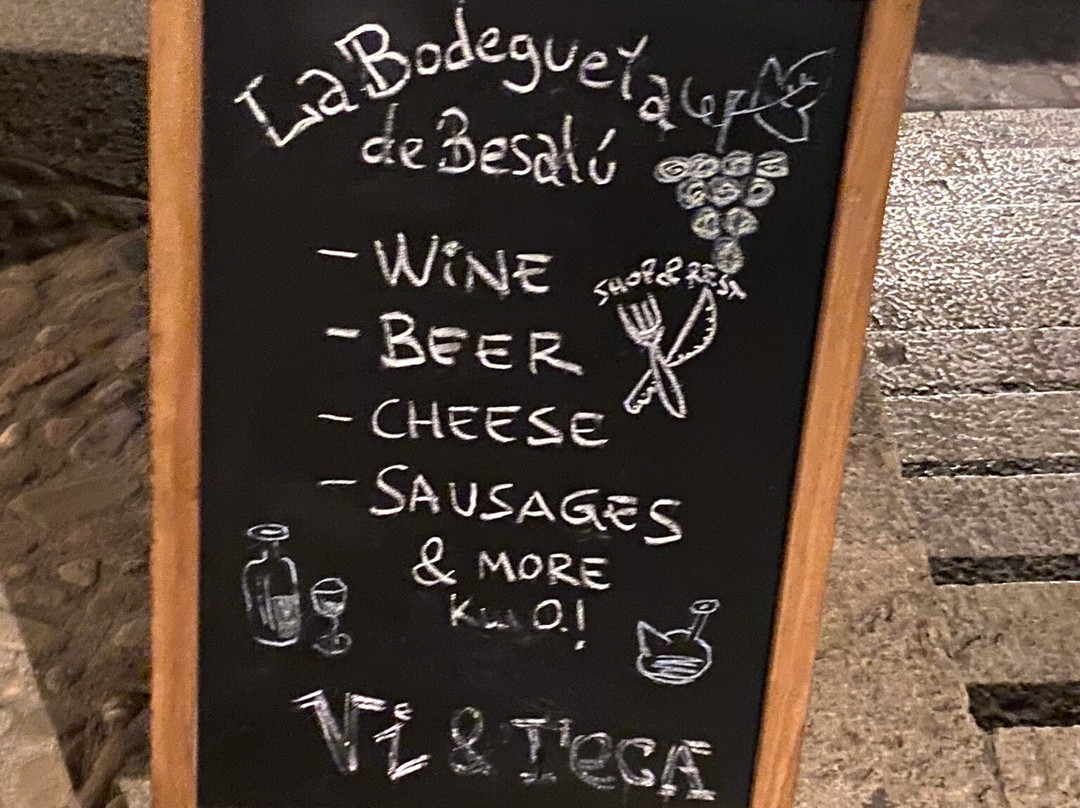 La Bodegueta
de Besalú
- WiNE
SHOP & REST
- BEER
- CHEESE
- SAUSAGES
& MORE
Km O.!
Vi & Teca